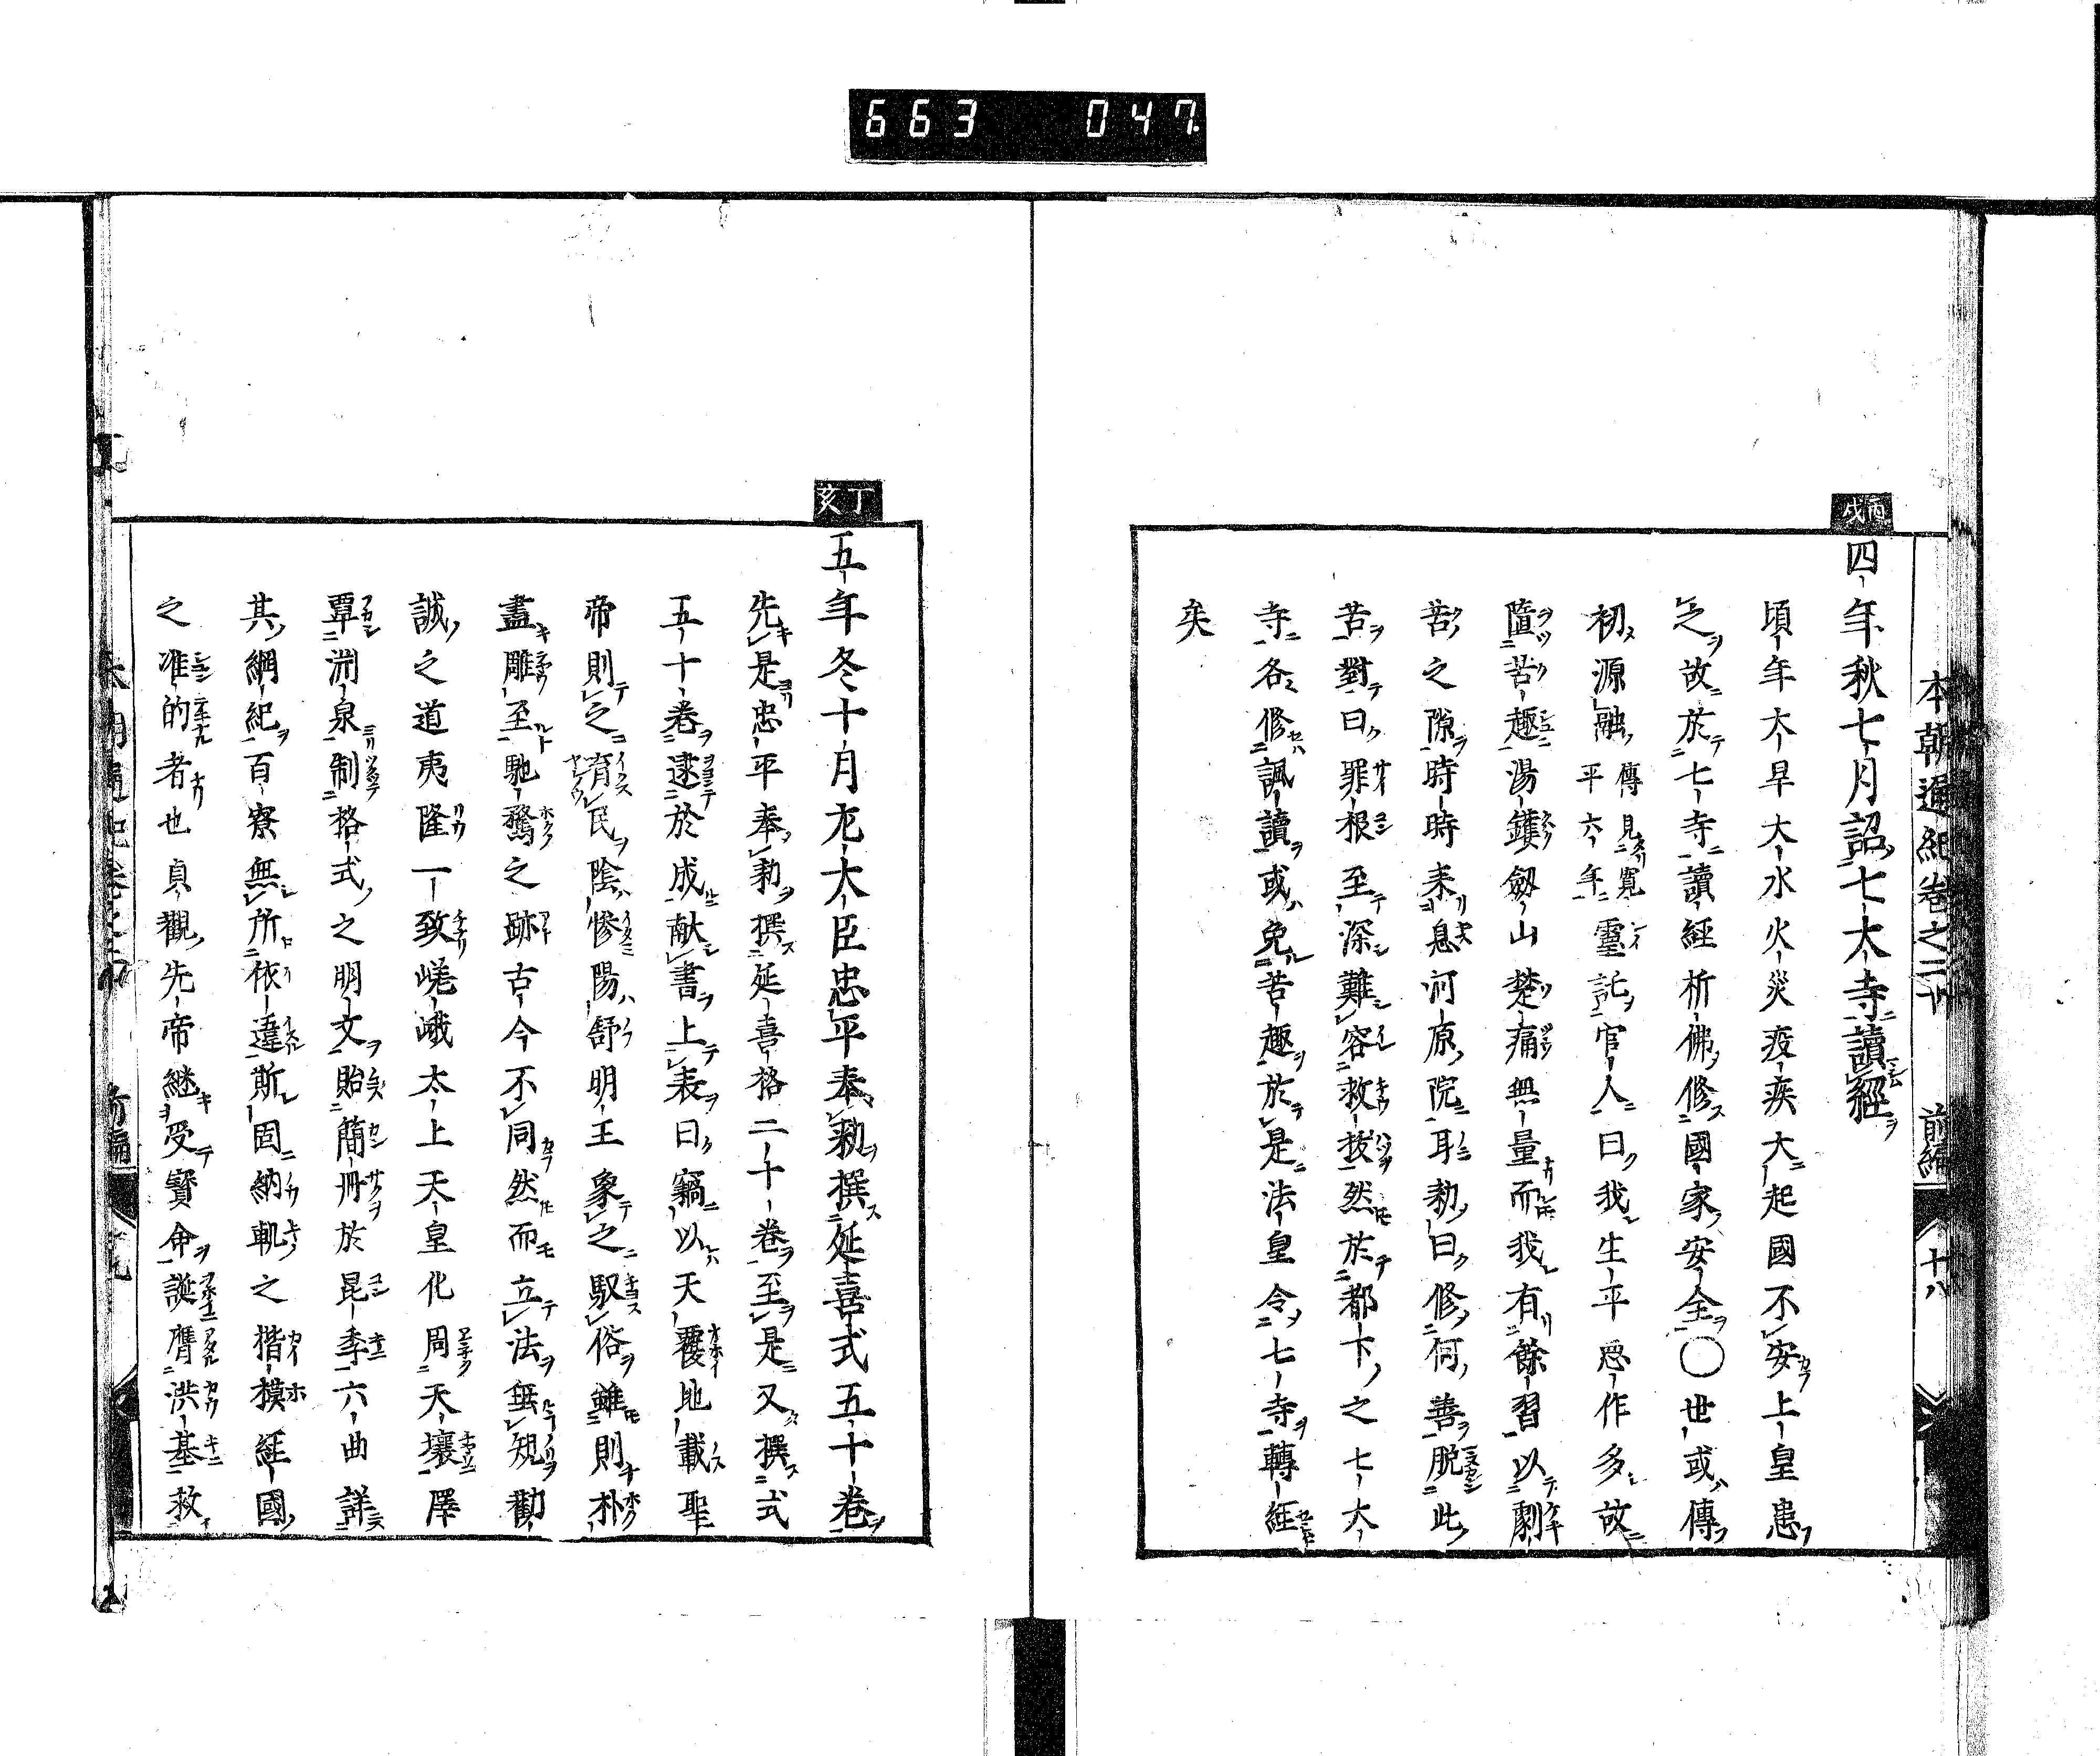 663 047
本朝通紀卷之二十 前編 十八
丙戌
四年秋七月詔七大寺讀經
頃年大旱大水火災疫疾大起國不安上皇患
之故於七寺讀經祈佛修國家安全○世或傳
初源融傳見寬平六年靈託官人曰我生平惡作多故
墮苦趣湯鑊劔山楚痛無量而我有餘習以劇
苦之隙時時來息河原院耳勅曰修何善脫此
苦對曰罪根至深難容救拔然於都下之七大
寺各修諷讀或免苦趣於是法皇令七寺轉經
矣
丁亥
五年冬十月左大臣忠平奉勅撰延喜式五十卷
先是忠平奉勅撰延喜格二十卷至是又撰式
五十卷逮於成献書上表曰竊以天覆地載聖
帝則之育民陰慘陽舒明王象之馭俗雖則朴
盡雕至馳騖之跡古今不同然而立法無規勸
誠之道夷隆一致嵯峨太上天皇化周天壤澤
覃淵泉制格式之明文貽簡冊於昆季六曲詳
其綱紀百寮無所依違斯固納軌之楷摸経國
之准的者也貞觀先帝継受寶命誕膺洪基救